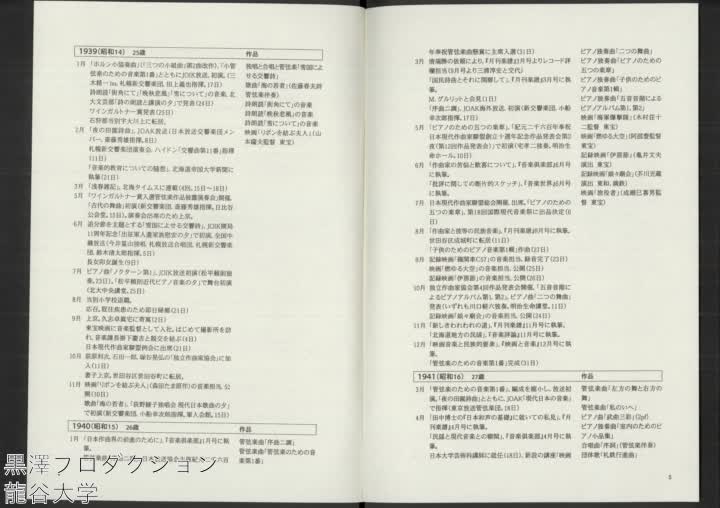 1939(昭和14) 25歳 作品
1月 「ホルン小協奏曲」(「三つの小組曲」第2曲改作)、「小管
弦楽のための音楽第1番」とともにJOIK放送、初演。(三
木精一 hn, 札幌新交響楽団, 田上義也指揮。17日)
詩朗読「街角にて」「晩秋悲風」「雪について」の音楽、北
大文芸部「詩の朗読と講演の夕」で発表(24日)
ワインガルトナー賞発表(25日)
石狩郡当別字大川上に転居。
2月 「夜の田園詩曲」、JOAK放送(日本放送交響楽団メン
バー, 斎藤秀雄指揮。8日)
札幌新交響楽団演奏会、ハイドン「交響曲第11番」指揮
(11日)
「音楽的教育についての随想」、北海道帝国大学新聞に
執筆(21日)
3月 「浅春雑記」、北海タイムスに連載(4回、15日〜18日)
5月 「ワインガルトナー賞入選管弦楽作品披露演奏会」開催。
「古代の舞曲」初演(新交響楽団, 斎藤秀雄指揮。日比谷
公会堂。13日)。演奏会出席のため上京。
6月 追分節を主題とする「雪国によせる交響詩」、JOIK開局
11周年記念「出征軍人遺家族慰安の夕」で初演、全国中
継放送(今井篁山独唱, 札幌放送合唱団, 札幌新交響楽
団, 鈴木清太郎指揮。5日)
長女卯女誕生(9日)
7月 ピアノ曲「ノクターン第1」、JOIK放送初演(松平頼則独
奏。23日)。「松平頼則近代ピアノ音楽の夕」で舞台初演
(北大中央講堂。25日)
8月 当別小学校退職。
応召。既往疾患のため即日帰郷(21日)
9月 上京。久志卓眞宅に寄寓(2日)
東宝映画に音楽監督として入社。はじめて撮影所を訪
れ、音楽課長掛下慶吉と親交を結ぶ(4日)
日本現代作曲家聯盟例会に出席(21日)
10月 荻原利次、石田一郎、箕作秋吉の「独立作曲家協会」に加
入(11日)
妻子上京。世田谷区世田谷町に転居。
11月 映画「リボンを結ぶ夫人」(森田たま原作)の音楽担当。公
開(30日)
歌曲「海の若者」、「荻野綾子独唱会 現代日本歌曲の夕」
で初演(新交響楽団, 小船幸次郎指揮。軍人会館。15日)
独唱と合唱と管弦楽「雪国によ
せる交響詩」
歌曲「海の若者」(佐藤春夫詩
管弦楽伴奏)
詩朗読「街角にて」の音楽
詩朗読「晩秋悲風」の音楽
詩朗読「雪について」の音楽
映画「リボンを結ぶ夫人」(山
本薩夫監督 東宝)
1940(昭和15) 26歳
1月 「日本作曲界の前進のために」、『音楽倶楽部』1月号に執
筆。
管弦楽曲「序曲二調」
管弦楽曲「管弦楽のための音
楽第1番」
黒澤プロダクション
龍谷大学
年奉祝管弦楽曲懸賞に主席入選(31日)
3月 清瀬保二の依頼により、『月刊楽譜』3月号よりレコード評
欄担当(9月号より三浦淳史と交代)
「国民詩曲とそれに関聯して」、『月刊楽譜』3月号に執
筆。
M. グルリットと会見(1日)
「序曲二調」、JOAK海外放送、初演(新交響楽団, 小船
幸次郎指揮。17日)
5月 「ピアノのための五つの楽章」、「紀元二千六百年奉祝
日本現代作曲家聯盟創立十周年記念作品発表会第2
夜(第12回作品発表会)」で初演(宅孝二独奏。明治生
命ホール。10日)
6月 「作曲家の苦悩と歓喜について」、『音楽倶楽部』6月号に
執筆。
「批評に関しての断片的スケッチ」、『音楽世界』6月号に
執筆。
7月 日本現代作曲家聯盟総会開催、出席。「ピアノのため
の五つの楽章」、第18回国際現代音楽祭に出品決定(6
日)
8月 「作曲家と彼等の民族音楽」、『月刊楽譜』8月号に執筆。
世田谷区成城町に転居(11日)
「子供のためのピアノ音楽第1輯」作曲(27日)
9月 記録映画「機関車C57」の音楽担当。録音完了(23日)
映画「燃ゆる大空」の音楽担当。公開(25日)
記録映画「伊那節」の音楽担当。公開(25日)
10月 独立作曲家協会第4回作品発表会開催。「五音音階に
よるピアノアルバム第1, 第2」、ピアノ曲「二つの舞曲」
発表(いずれも川口輝六独奏。明治生命講堂。11日)
記録映画「娘々廟会」の音楽担当。公開(24日)
11月 「新しきわれわれの道」、『月刊楽譜』11月号に執筆。
「北海道地方の民謡」、『音楽評論』11月号に執筆。
12月 「映画音楽と民族的要素」、『映画と音楽』12月号に執
筆。
「管弦楽のための音楽第1番」完成(31日)
ピアノ独奏曲「二つの舞曲」
ピアノ独奏曲「ピアノのための
五つの楽章」
ピアノ独奏曲「子供のためのピ
アノ音楽第1輯」
ピアノ独奏曲「五音音階による
ピアノアルバム第1, 第2」
記録映画「伊那節」(亀井文夫
演出 東宝)
記録映画「娘々廟会」(芥川光蔵
演出 東和, 満鉄)
映画「旅役者」(成瀬巳喜男監
督 東宝)
1941(昭和16) 27歳 作品
3月 「管弦楽のための音楽第1番」、編成を縮小し、放送初
演。「夜の田園詩曲」とともに、JOAK「現代日本の音楽」
で指揮(東京放送管弦楽団。18日)
4月 「田中博士の『日本和声の基礎』に就いての私見」、『月
刊楽譜』4月号に執筆。
「民謡と現代音楽との聯関」、『音楽倶楽部』4月号に執
筆。
日本大学芸術科講師に就任(18日)。新設の講座「映画
管弦楽曲「左方の舞と右方の
舞」
管弦楽曲「私のいへ」
ピアノ曲「武曲三影」(2pf)
ピアノ独奏曲「室内のための
ピアノ小品集」
合唱曲「序詞」(管弦楽伴奏)
団体歌「札鉄行進曲」
5